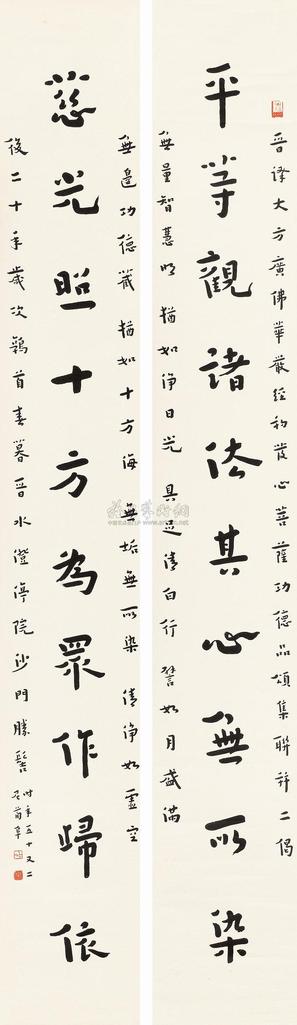 晉譯大方廣佛華嚴經初發心菩薩功德品頌集聯并二偈
平等觀諸法其心無所染
無量智慧明猶如淨日光具足清白行譬如月盛滿
無邊功德藏猶如十方海無垢無所染清淨如虛空
慈光照十方為眾作歸依
後二十年歲次鶉首春暮晉水澄停院沙門勝髻
時年五十又二